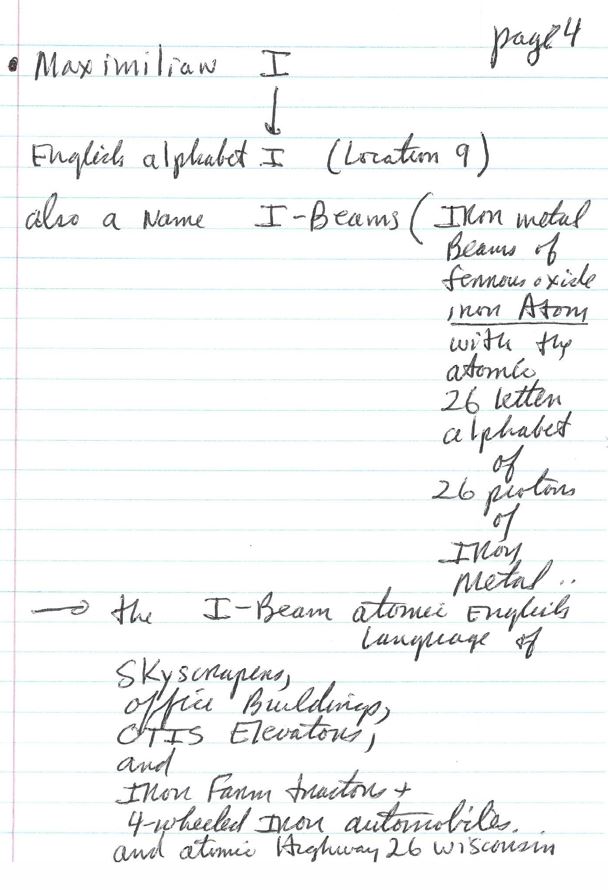 page 4
• Maximilian I
↓
English alphabet I (Location 9)
also a Name I-Beams (Iron metal
Beams of
ferrous oxide
iron Atom
with the
atomic
26 letter
alphabet
of
26 protons
of
Iron
Metal ..
→ the I-Beam atomic English
Language of
Skyscrapers,
office Buildings,
OTIS Elevators,
and
Iron Farm tractors +
4-wheeled Iron automobiles.
and atomic Highway 26 Wisconsin